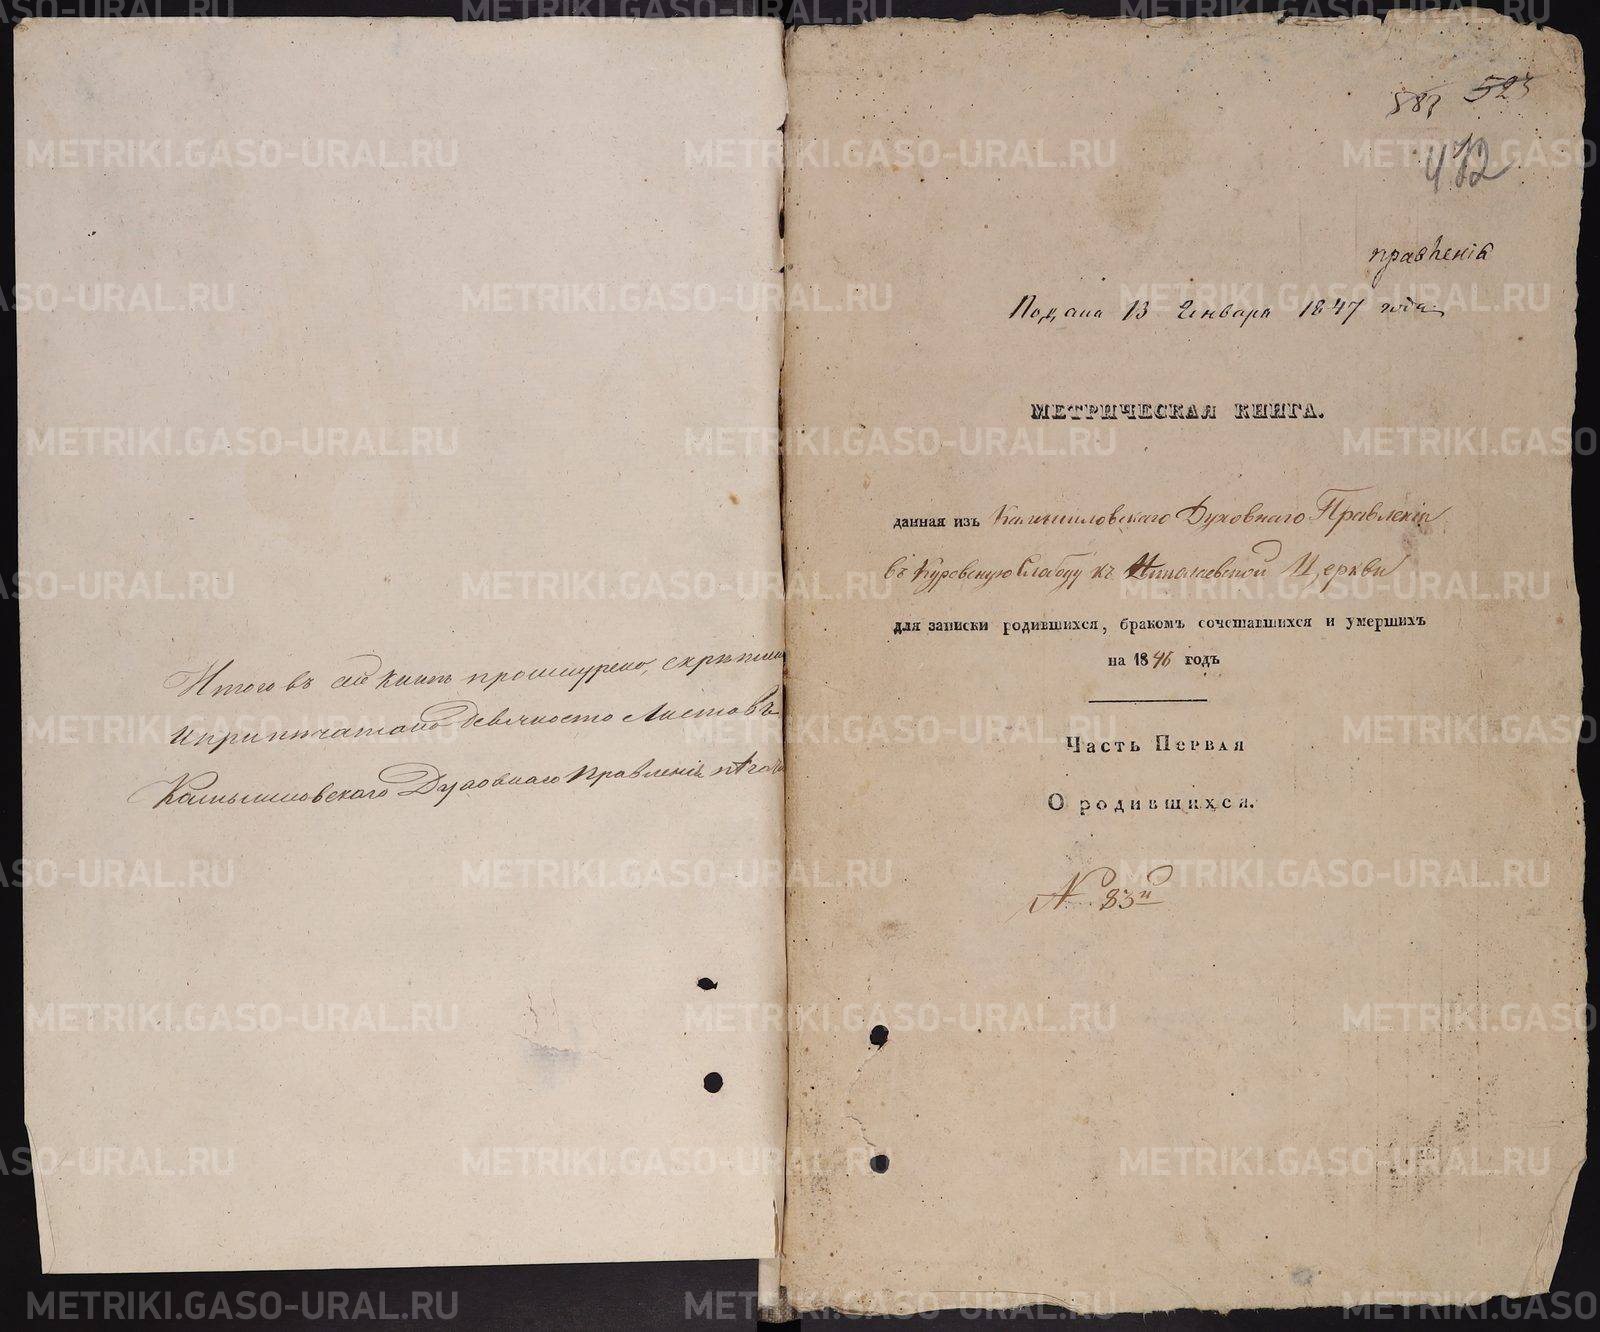 Итого въ сей книгѣ прошнурено, скрѣплен
и припечатано девяносто листовъ
Камышловскаго Духовнаго Правленія
523
472
правленія
Подана 13 Генваря 1847 года
МЕТРИЧЕСКАЯ КНИГА.
данная изъ Камышловскаго Духовнаго Правленія
въ Куровскую Слабоду къ Николаевской Церкви
для записки родившихся, бракомъ сочетавшихся и умершихъ
на 1846 годъ
Часть Первая
О родившихся.
N. 83й
METRIKI.GASO-URAL.RU